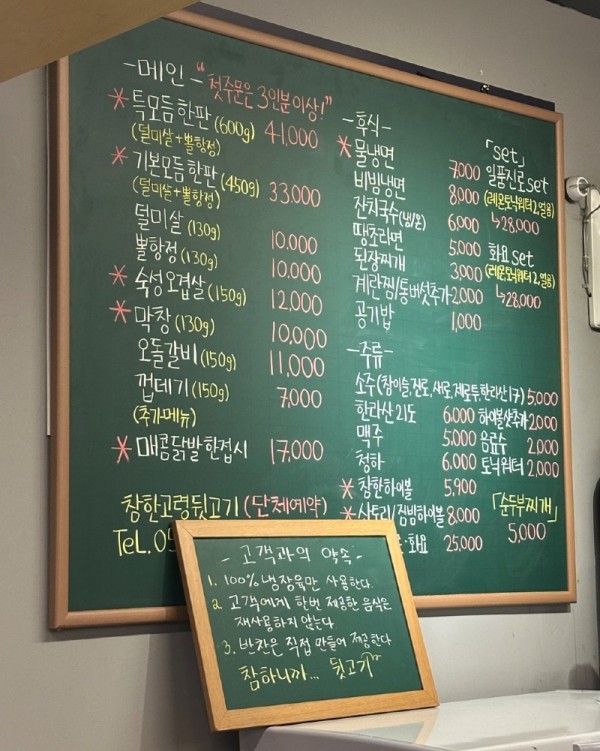 -메인- "첫주문은 3인분이상!"
* 특모듬한판 (600g) 41,000
(덜미살+뽈항정)
* 기본모듬한판 (450g) 33,000
(덜미살+뽈항정)
덜미살 (130g) 10.000
뽈항정 (130g) 10.000
* 숙성오겹살 (150g) 12,000
* 막창 (130g) 10,000
오돌갈비 (150g) 11,000
껍데기 (150g) 7,000
(추가메뉴)
* 매콤닭발 한접시 17,000
참한고령뒷고기 (단체예약)
TeL.05
-후식-
* 물냉면 7,000
비빔냉면 8,000
잔치국수(냉/온) 6,000
땡초라면 5,000
된장찌개 3,000
계란찜/통버섯추가 2,000
공기밥 1,000
「set」
일품진로 set
(레몬토닉워터2,얼음)
↳28,000
화요 set
(레몬토닉워터2,얼음)
↳28,000
-주류-
소주 (참이슬,진로,새로,제로투,한라산17) 5,000
한라산21도 6,000 하이볼샷추가 2,000
맥주 5,000 음료수 2,000
청하 6,000 토닉워터 2,000
* 참한하이볼 5,900
* 사토리/짐빔하이볼 8,000
·화요 25,000
「순두부찌개」
5,000
- 고객과의 약속 -
1. 100% 냉장육만 사용한다.
2. 고객에게 한번 제공한 음식은
재사용하지 않는다
3. 반찬은 직접 만들어 제공한다
참하니까... 뒷고기"